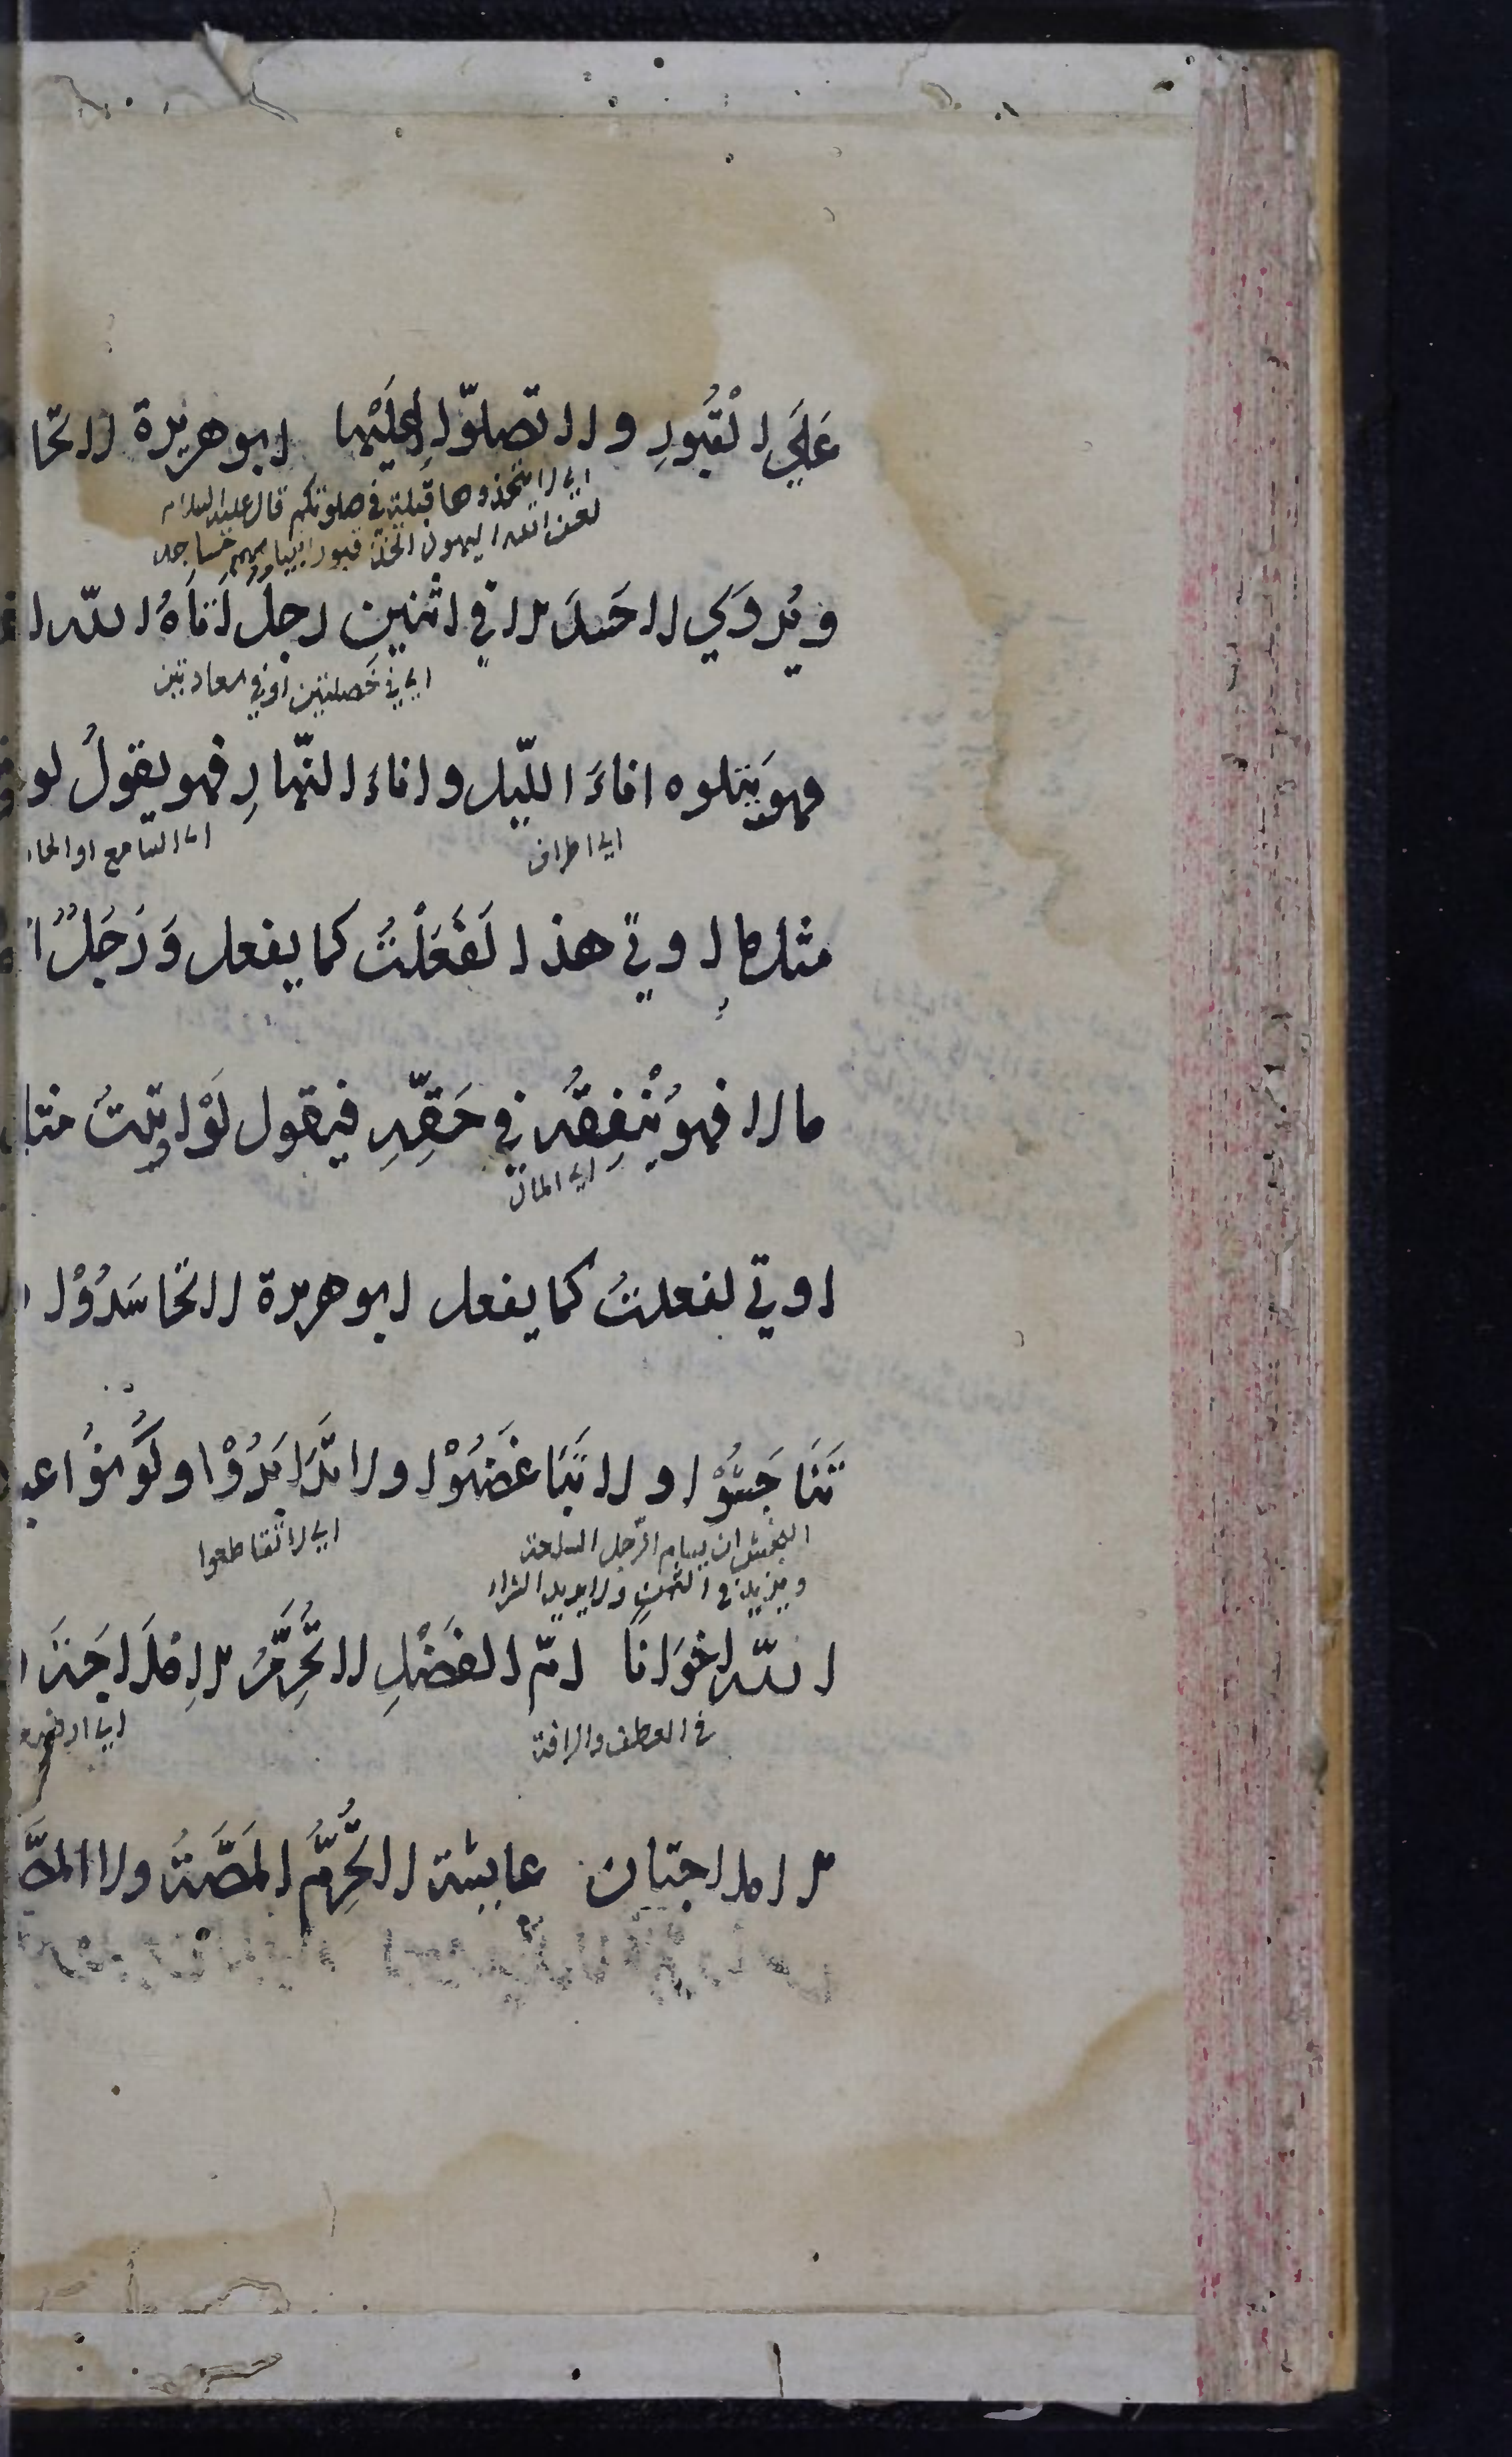 عَلَي الْقُبُورِ ولا تصلّوا إِليْها ابو هريرة لا تحا
اي لا تتخذوها قبلة في صلوتكم قال عليه السلام
لعن الله اليهود اتخذ قبور انبياءهم مساجد
ويُروَي لا حَسدَ الا في اثنين رجل اَتَاهُ الله
اي في خصلتين او في معادتين
فهو يَتلوه اناءَ اللّيل واناءَ النّهارِ فهو يقولُ لو
اي اطراف
اي السامع او الحا
مثل ما اوتي هذا لَفَعَلْتُ كما يفعل وَرَجُلٌ
مالا فهو يُنْفِقُه في حَقِّهِ فيقول لَوْ اوتيتُ مثل
اي المال
اوتي لفعلتُ كما يفعل ابو هريرة لا تحاسَدُوْا
تَنَاجَشُوْا ولا تَبَاغَضُوْا ولا تَدَابَرُوْا وكُونُوُا عبا
النجش ان يساوم الرّجل السلعة
ويزيد في الثمن ولا يريد الشراء
اي لا تقاطعوا
الله اخوَانًا امّ الفَضْلِ لا تُحَرِّمُ الاِملَاجَةَ
في العطف والرافة
الاملاجتان عايشة لا تُحَرِّمُ المَصَّةُ ولا المصَّ